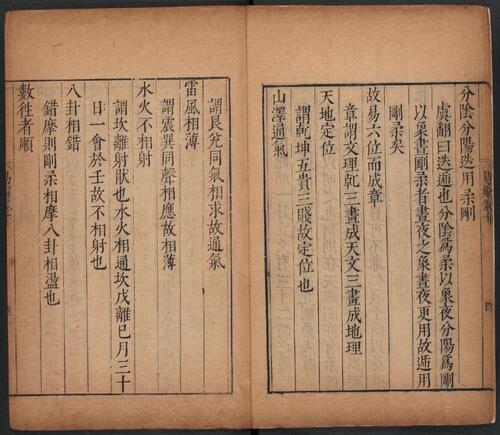 分陰分陽迭用柔剛
虞翻曰迭遞也分陰爲柔以象夜分陽爲剛
以象晝剛柔者晝夜之象晝夜更用故遞用
剛柔矣
故易六位而成章
章謂文理乾三畫成天文三畫成地理
天地定位
謂乾坤五貴三賤故定位也
山澤通氣
謂艮兌同氣相求故通氣
雷風相薄
謂震巽同聲相應故相薄
水火不相射
謂坎離射猒也水火相通坎戊離已月三十
日一會於壬故不相射也
八卦相錯
錯摩則剛柔相摩八卦相盪也
數徃者順